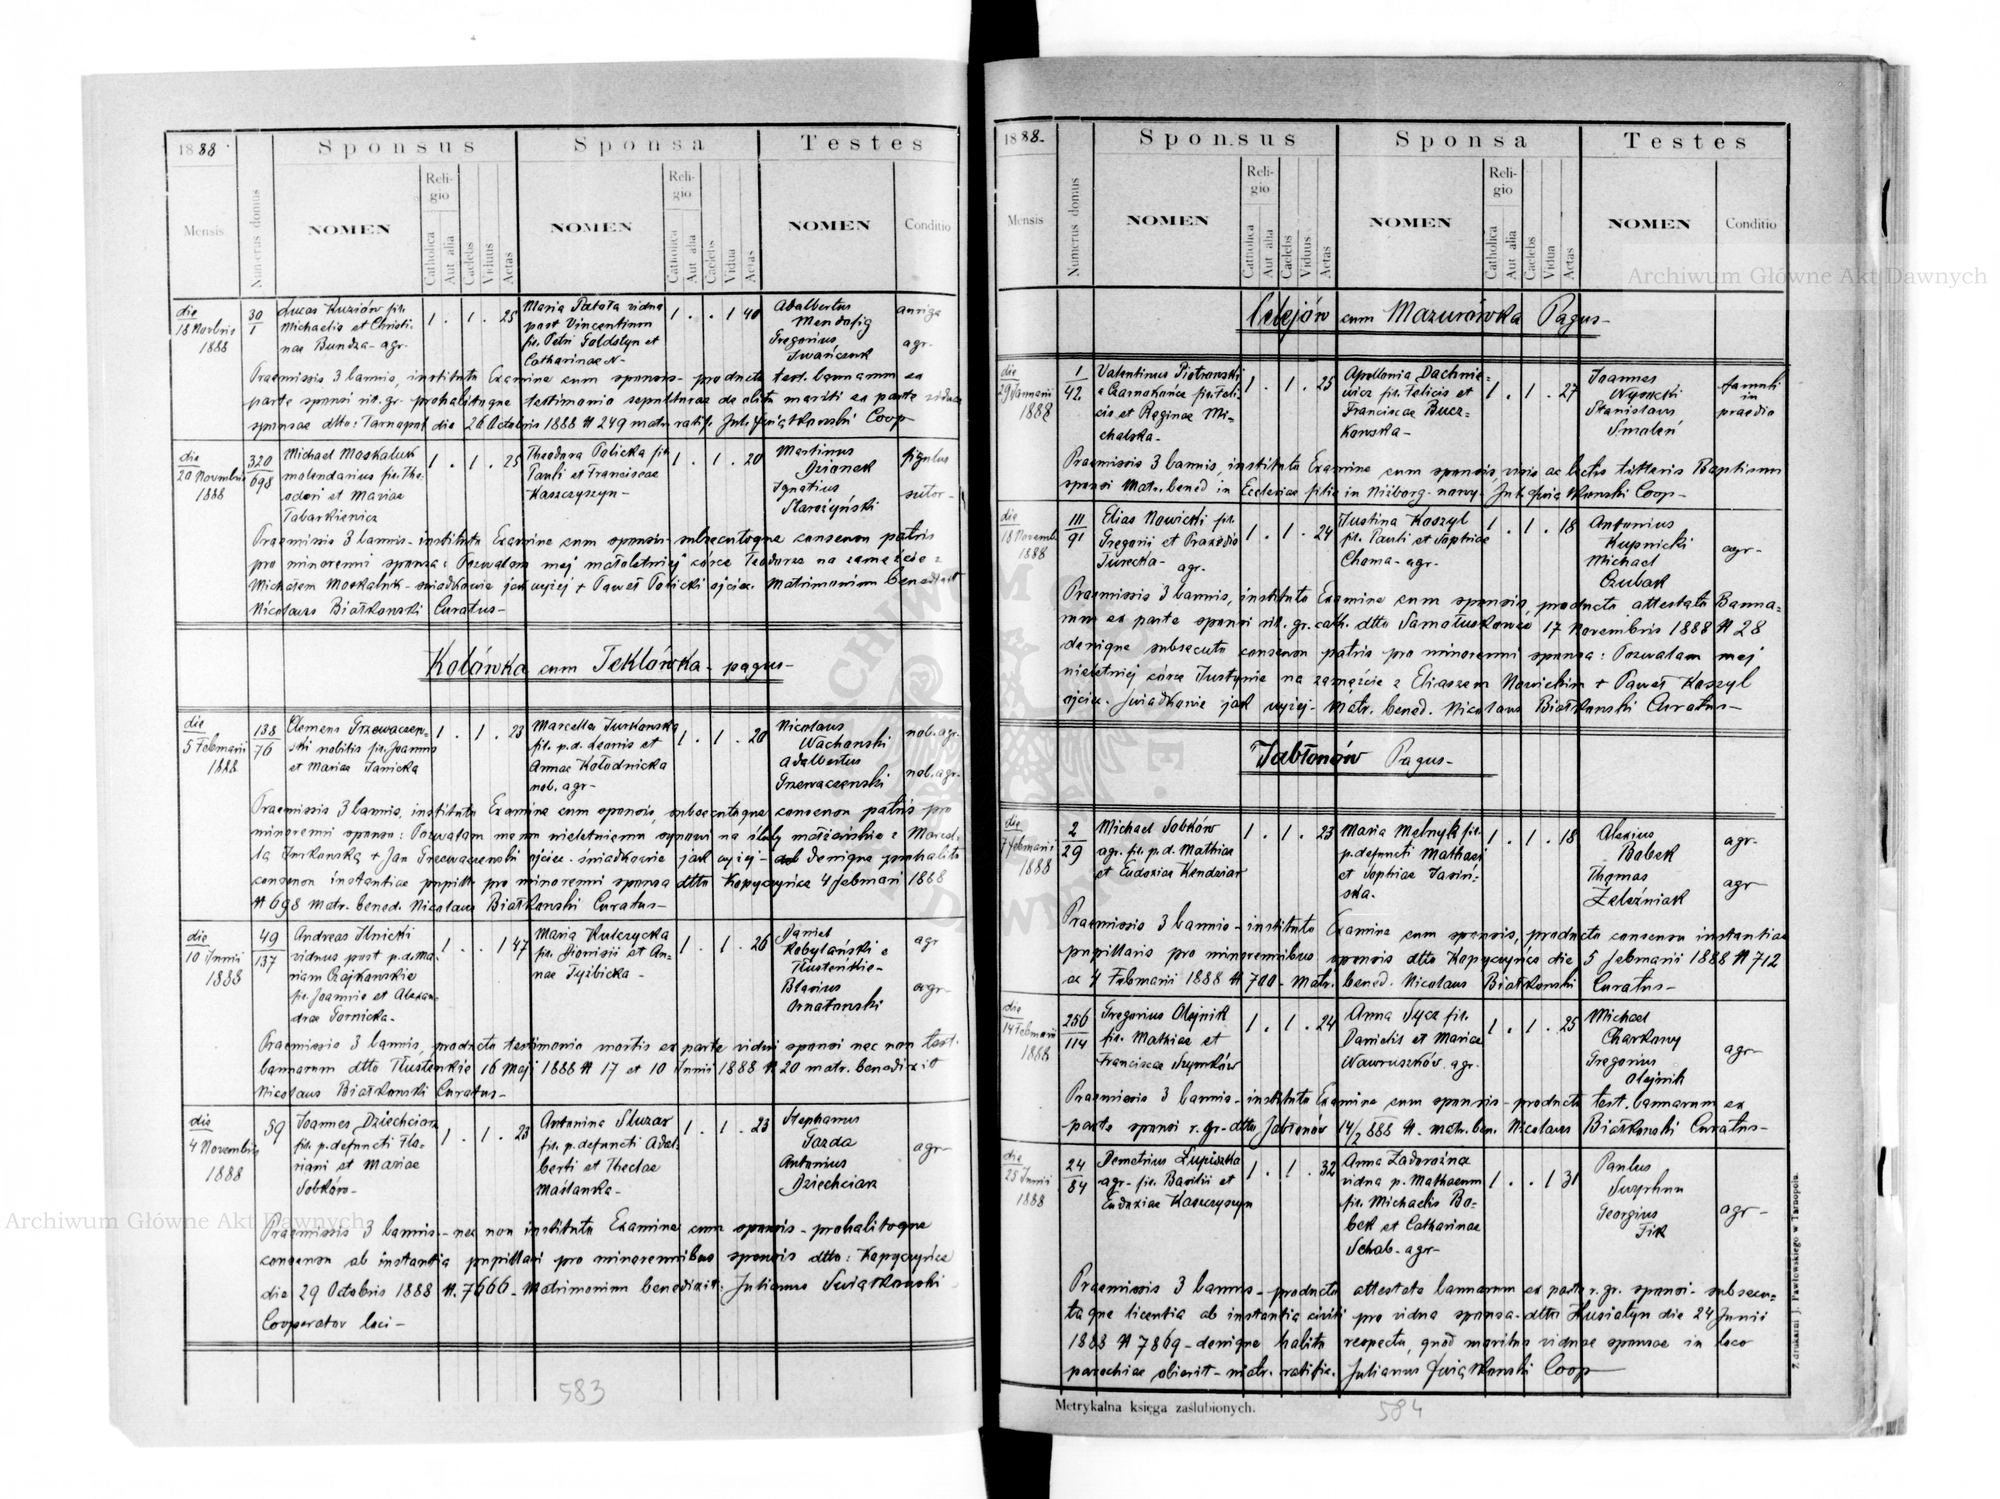 1888.
Sponsus
Sponsa
Testes
Mensis
Numerus domus
NOMEN
Religio
Catholica
Aut alia
Caelebs
Viduus
Aetas
NOMEN
Religio
Catholica
Aut alia
Caelebs
Vidua
Aetas
NOMEN
Conditio
die
18 Novbris
1888
30
1
Lucas Kuziów fil.
Michaelis et Christi-
nae Bundza - agr.
1 . 1 . 25
Maria Patata vidua
post Vincentium
fil. Petri Goldstyn et
Catharinae N-
1 . . 1 40
Adalbertus
Gregorius
Iwańczuk
auriga
agr-
Praemissis 3 bannis, instituto Examine cum sponsis - producto test. bannorum ex
parte sponsi rit. gr. prohabitoque testimonio sepulturae de olitu mariti ex parte viduae
sponsae dtto: Tarnopol die 26 Octobris 1888 N 249 matr. ratif. Jul. Świątkowski Coop
die
20 Novembris
1888
320
698
Michael Moskaluk
molendarius fil. The-
odori et Mariae
Tabarkiewicz
1 . 1 . 25
Theodora Policka fil.
Pauli et Franciscae
Kaszczyszyn -
1 . 1 . 20
Martinus
Dzionek
Ignatius
Starożyński
figulus
sutor -
Praemissis 3 bannis - instituto Examine cum sponsis - subsecutoque consensu patris
pro minorenni sponsa: Pozwalam mej małoletniej córce Teodorze na zamęście z
Michałem Moskaluk - świadkowie jak wyżej + Paweł Policki ojciec. Matrimonium benedixit
Nicolaus Białkowski Curatus -
Kolówka cum Teklówka - pagus -
die
5 Februarii
1888
138
76
Clemens Grzewaczew-
ski nobilis fil. Joannis
et Mariae Janicka
1 . 1 . 23
Marcella Jurkowska
fil. p.d. Leonis et
Annae Kołodnicka
nob. agr -
1 . 1 . 20
Nicolaus
Wachonski
Adalbertus
Grzewaczewski
nob. agr.
nob. agr -
Praemissis 3 bannis, instituto Examine cum sponsis, subsecutoque consensu patris pro
minorenni sponso: Pozwalam memu nieletniemu synowi na śluby małżeńskie z Marcel-
lą Jurkowską + Jan Grzewaczewski ojciec. świadkowie jak wyżej - denique prohabito
consensu instantiae pupill. pro minorenni sponsa dtto Kopyczyńce 4 Februari 1888
N 698 matr. bened. Nicolaus Białkowski Curatus -
die
10 Junii
1888
49
137
Andreas Ilnicki
viduus post p.d. Ma-
riam Czajkowskie
fil. Joannis et Alexan-
drae Gornicka -
1 . . 1 47
Maria Kulczycka
fil. Dionisii et An-
nae Tyżbicka -
1 . 1 . 26
Daniel
Kobylański e
Tłusteńkie -
Blasius
Ornatowski
agr
agr -
Praemissis 3 bannis, producto testimonio mortis ex parte vidui sponsi nec non test.
bannorum dtto Tłusteńkie 16 Maji 1888 N 17 et 10 Junii 1888 N 20 matr. benedixit
Nicolaus Białkowski Curatus -
die
4 Novembris
1888
59
Joannes Dziechciarz
fil. p. defuncti Flo-
riani et Mariae
Sobków -
1 . 1 . 23
Antonina Sluzar
fil. p. defuncti Adal-
berti et Theclae
Maślanka -
1 . 1 . 23
Stephanus
Gazda
Antonius
Dziechciarz
agr -
Praemissis 3 bannis - nec non instituto Examine cum sponsis - prohabitoque
consensu ab instantia pupillari pro minorennibus sponsis dtto: Kopyczyńce
die 29 Octobris 1888 N. 7666 - Matrimonium benedixit: Julianus Świątkowski
Cooperator loci -
583
1888.
Sponsus
Sponsa
Testes
Mensis
Numerus domus
NOMEN
Religio
Catholica
Aut alia
Caelebs
Viduus
Aetas
NOMEN
Religio
Catholica
Aut alia
Caelebs
Vidua
Aetas
NOMEN
Conditio
Celejów cum Mazurówka Pagus -
die
29 Januarii
1888
1
42
Valentinus Piotrowski
e Czarnokońce fil. Feli-
cis et Reginae Mi-
chalska -
1 . 1 . 25
Apollonia Dachnie-
wicz fil. Felicis et
Franciscae Bucz-
kowska -
1 . 1 . 27
Joannes
Wysocki
Stanislaus
Smoleń
famuli
in
praedio
Praemissis 3 bannis, instituto Examine cum sponsis, visis ac lectis litteris Baptismi
sponsi Matr. bened in Ecclesiae filie in Niżborg - nowy - Jul. Świątkowski Coop -
die
18 Novemb.
1888
111
91
Elias Nowicki fil.
Gregorii et Praxedis
Turecka - agr.
1 . 1 . 24
Justina Koszyl
fil. Pauli et Sophiae
Choma - agr.
1 . 1 . 18
Antonius
Kupnicki
Michael
Czubak
agr -
Praemissis 3 bannis, instituto Examine cum sponsis, producto attestato Banno-
rum ex parte sponsi rit. gr. cath. dtto Samołuskowce 17 Novembris 1888 N 28
denique subsecuto consensu patris pro minorenni sponsa: Pozwalam mej
nieletniej córce Justynie na zamęście z Eliaszem Nowickim + Paweł Koszyl
ojciec. świadkowie jak wyżej - Matr. bened. Nicolaus Białkowski Curatus -
Jabłonów Pagus -
die
7 Februarii
1888
2
29
Michael Sobków
agr. fil. p.d. Mathiae
et Eudoxiae Kendzior
1 . 1 . 23
Maria Melnyk fil.
p. defuncti Mathaei
et Sophiae Jasiń-
ska.
1 . 1 . 18
Alexius
Bobek
Thomas
Zeleźniak
agr -
agr -
Praemissis 3 bannis - instituto Examine cum sponsis, producto consensu instantiae
pupillaris pro minorennibus sponsis dtto Kopyczyńce die 5 Februarii 1888 N 712
ac 4 Februarii 1888 N 700 - Matr. bened. Nicolaus Białkowski Curatus -
die
14 Februarii
1888
256
114
Gregorius Olejnik
fil. Mathiae et
Franciscae Szymków
1 . 1 . 24
Anna Sycz fil.
Danielis et Mariae
Wawruszków. agr.
1 . 1 . 25
Michael
Charkowy
Gregorius
Olejnik
agr -
Praemissis 3 bannis - instituto Examine cum sponsis - producto test. bannorum ex
parte sponsi r. gr. dtto Jabłonów 14/2 888 N. matr. ben. Nicolaus Białkowski Curatus -
die
25 Junii
1888
24
84
Demetrius Lupiszka
agr - fil. Basilii et
Eudoxiae Kaszczyszyn
1 . 1 . 32
Anna Zadorożna
vidua p. Mathaeum
fil. Michaelis Bo-
bek et Catharinae
Schab - agr -
1 . . 1 31
Paulus
Georgius
Fik
agr -
Praemissis 3 bannis - producto attestato bannorum ex parte r. gr. sponsi - subsecu-
toque licentia ab instantia civili pro vidua sponsa - dtto Husiatyn die 24 Junii
1888 N 7869 - denique habito respectu, quod maritus viduae sponsae in loco
parochiae obierit - matr. ratific. Julianus Świątkowski Coop
Metrykalna księga zaślubionych.
584
Z drukarni J. Pawłowskiego w Tarnopolu.
Archiwum Główne Akt Dawnych
Archiwum Główne Akt Dawnych